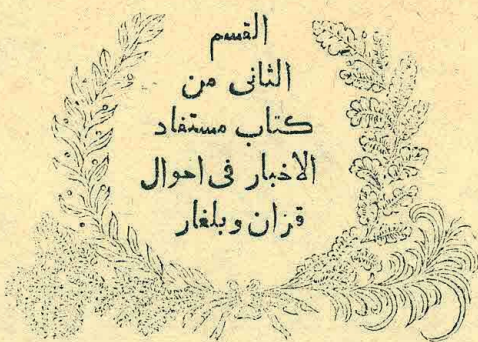 القسم
الثانى من
كتاب مستفاد
الاخبار فى احوال
قزان وبلغار